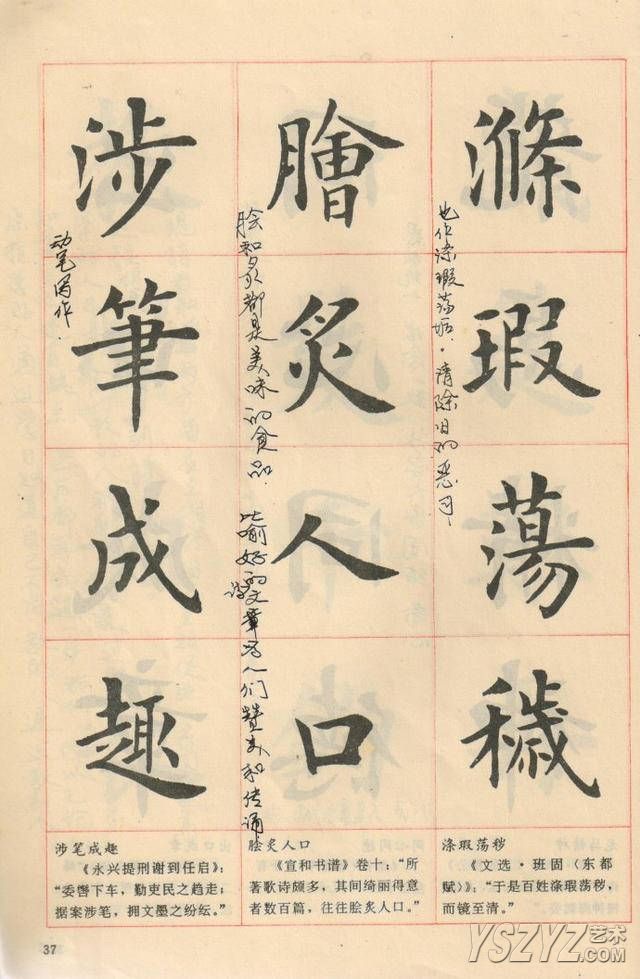 滌瑕蕩穢
也作涤瑕荡垢·清除旧的恶习
膾炙人口
脍和炙都是美味的食品.
比喻好的诗文章为人们赞美和传诵
涉筆成趣
动笔写作.
涉笔成趣
《永兴提刑谢到任启》：
“委辔下车，勤吏民之趋走；
据案涉笔，拥文墨之纷纭。”
脍炙人口
《宣和书谱》卷十：“所
著歌诗颇多，其间绮丽得意
者数百篇，往往脍炙人口。”
涤瑕荡秽
《文选·班固〈东都
赋〉》：“于是百姓涤瑕荡秽，
而镜至清。”
37
YSZYZ艺术
.com